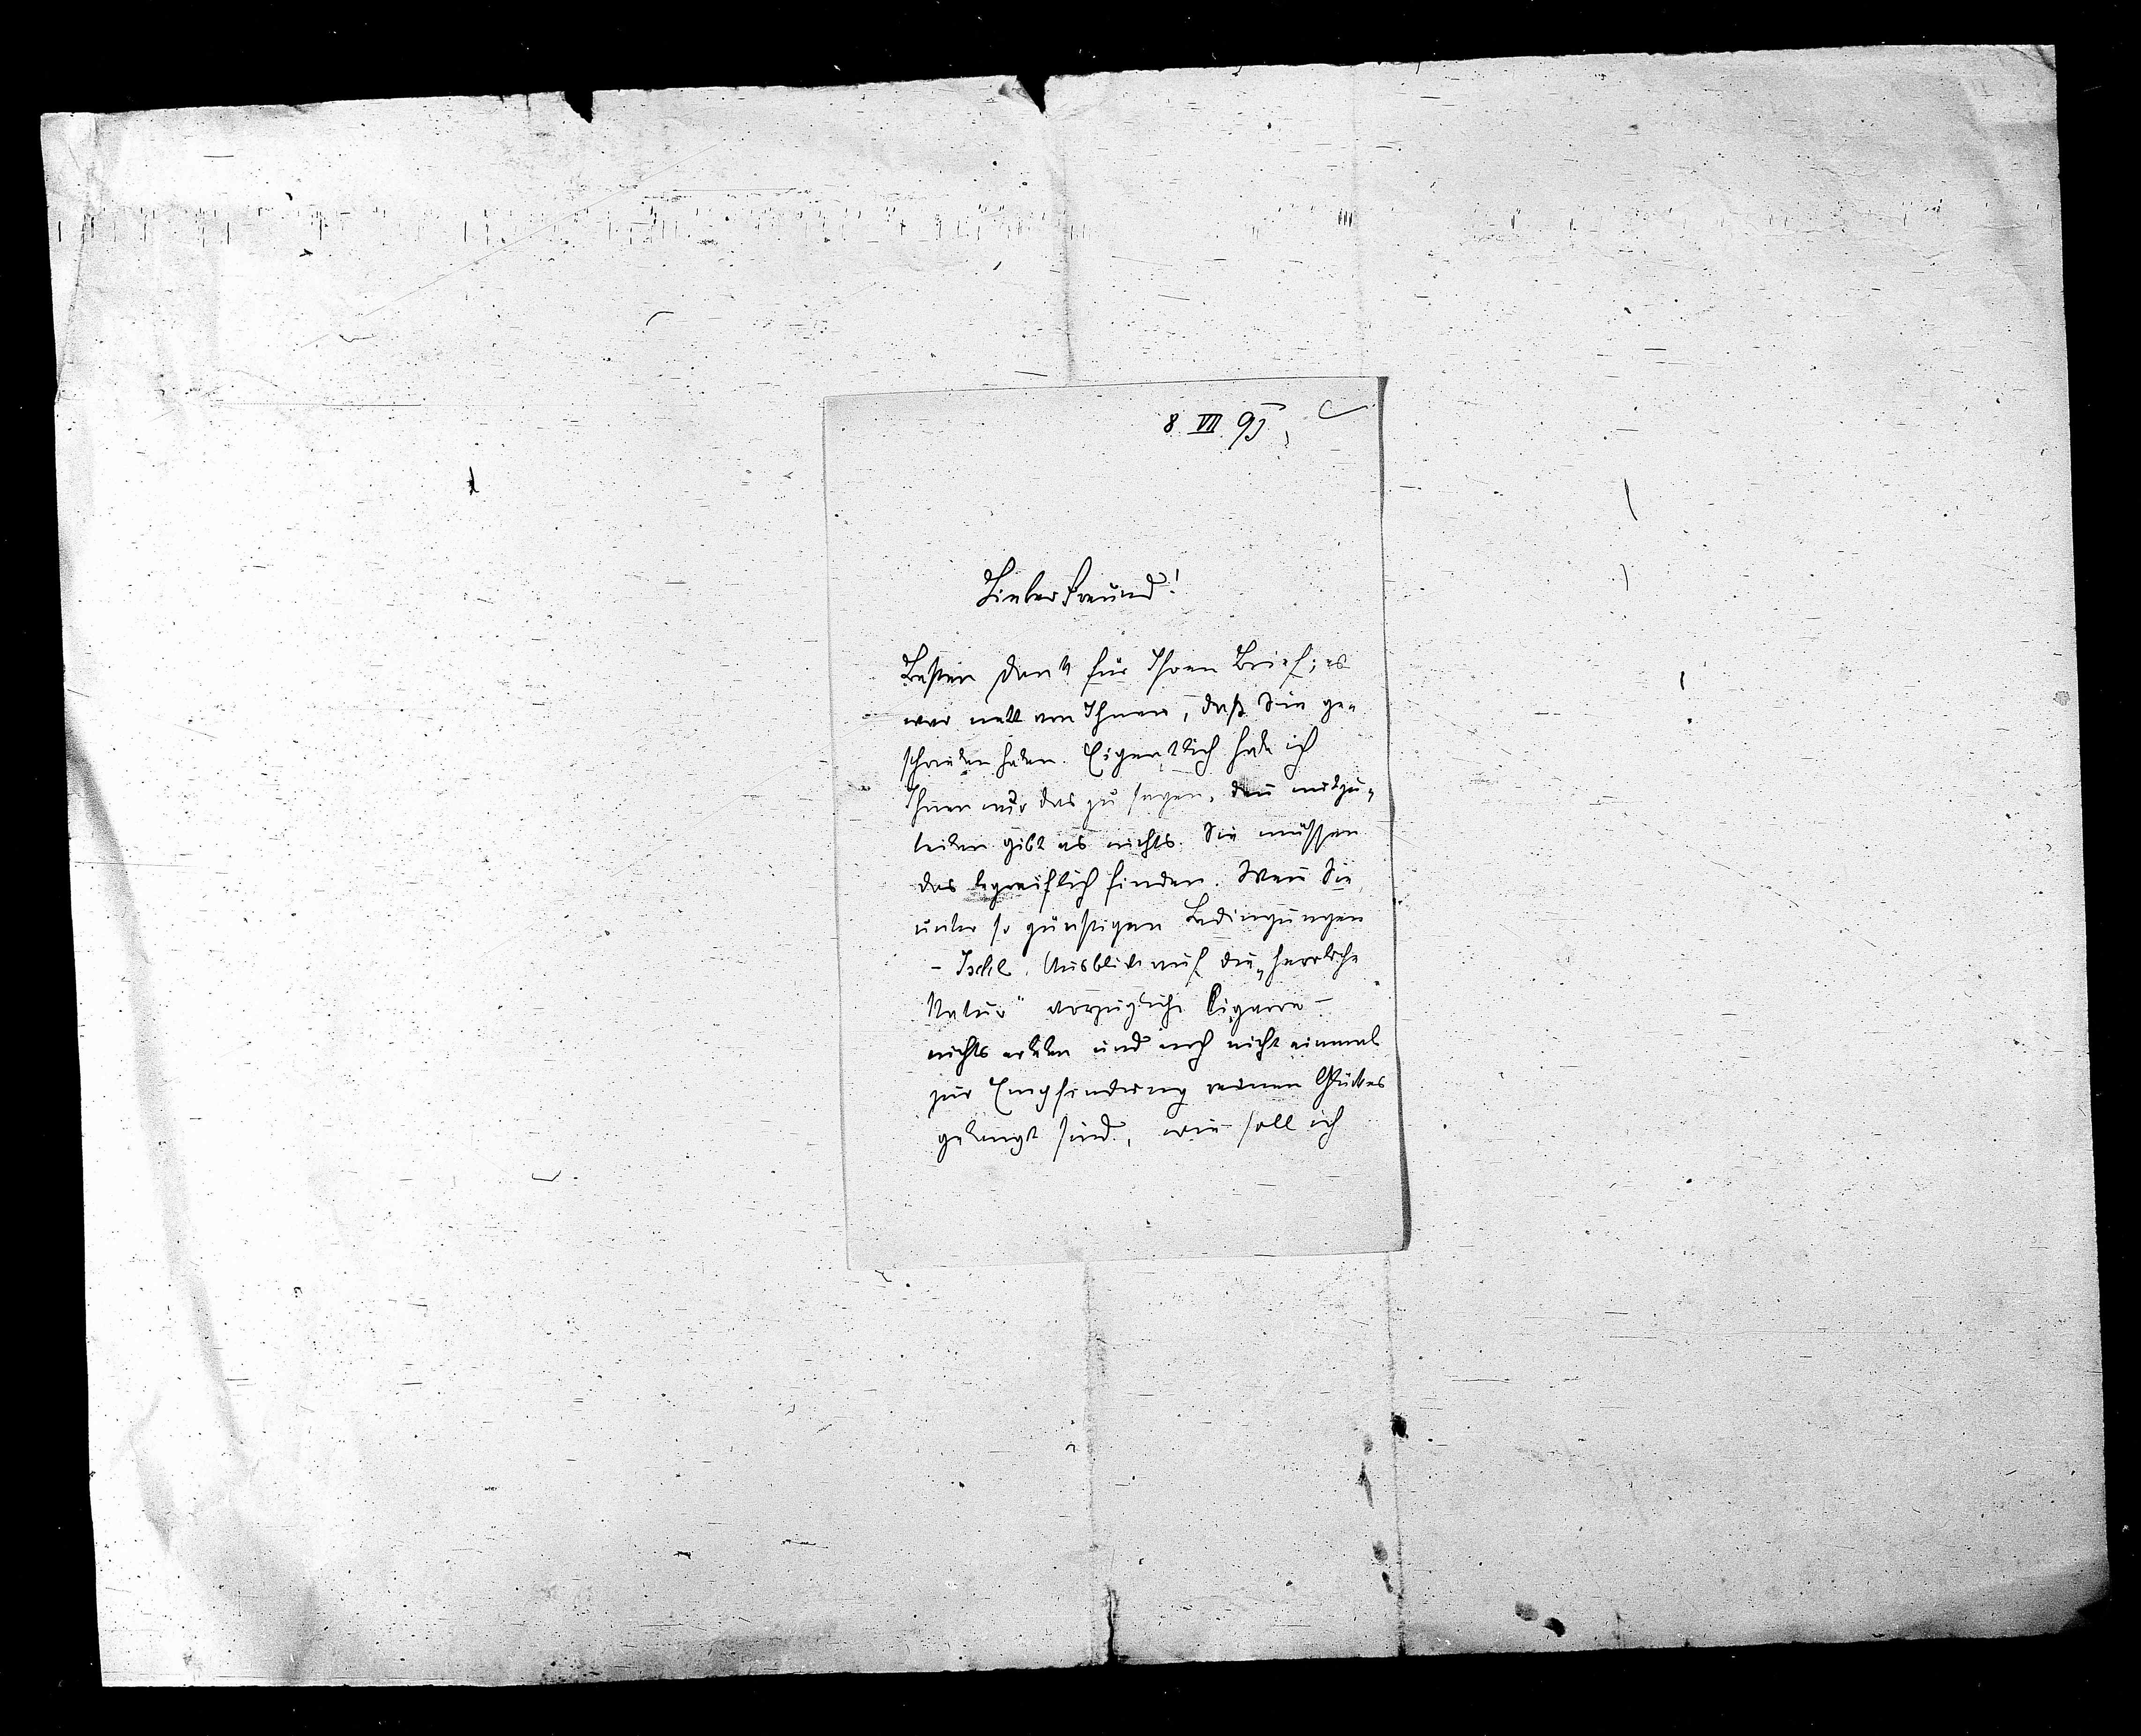 8 VII 95
Lieber Freund!
Besten Dank für Ihren Brief; es
war nett von Ihnen, daß Sie ge-
schrieben haben. Eigentlich habe ich
Ihnen nur das zu sagen, den̄ mitzu-
teilen gibt es nichts. Sie müssen
das begreiflich finden. Wen̄ Sie
unter so günstigen Bedingungen
– Ischl, Ausblick auf die „herrliche
Natur“ vorzügliche Cigarre –
nichts erleben und noch nicht einmal
zur Empfindung reinen Glückes
gelangt sind, wie soll ich